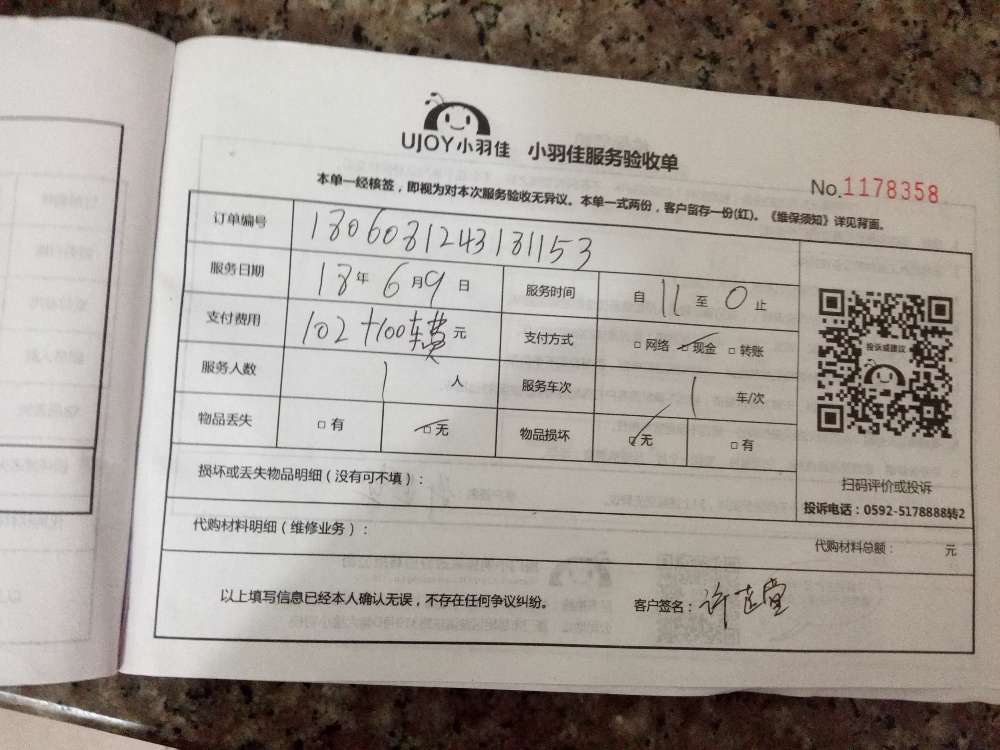 UJOY小羽佳 小羽佳服务验收单
No.1178358
本单一经核签，即视为对本次服务验收无异议。本单一式两份，客户留存一份(红)。《维保须知》详见背面。
订单编号 1806081243181153
服务日期 18年6月9日 服务时间 自11至0止
支付费用 102+100车费元 支付方式 □网络 □现金 □转账
服务人数 1人 服务车次 1车/次
物品丢失 □有 □无 物品损坏 □无 □有
投诉或建议
扫码评价或投诉
投诉电话：0592-5178888转2
损坏或丢失物品明细（没有可不填）：
代购材料明细（维修业务）： 代购材料总额： 元
以上填写信息已经本人确认无误，不存在任何争议纠纷。 客户签名：许